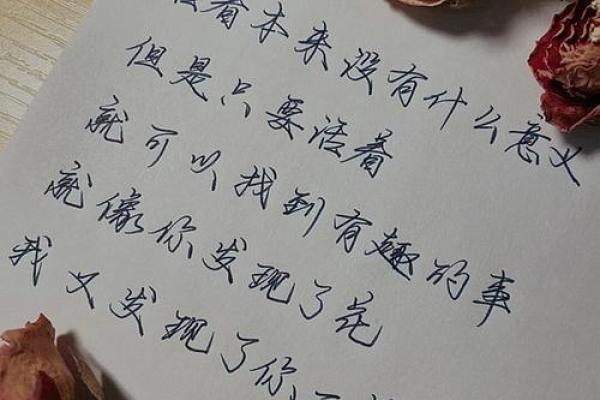 着本来没有什么意义
但是只要活着
就可以找到有趣的事
就像你发现了花
我又发现了你